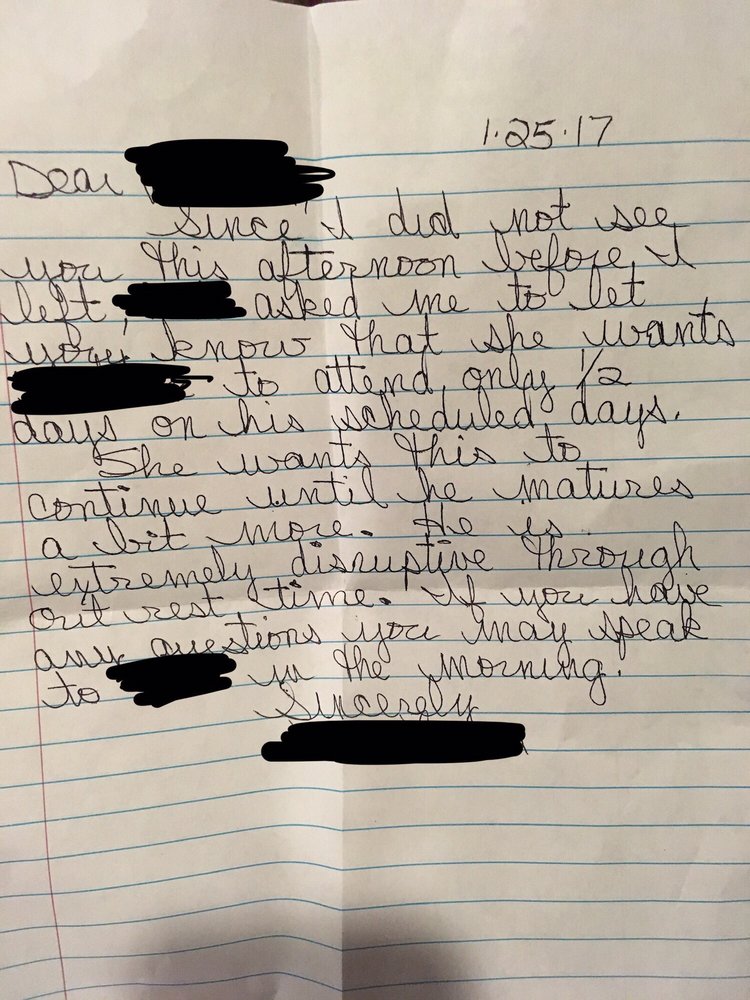 1.25.17
Dear
Since I did not see
you this afternoon before I
left, asked me to let
you know that she wants
to attend only 1/2
days on his scheduled days.
She wants this to
continue until he matures
a bit more. He is
extremely disruptive through
out rest time. If you have
any questions you may speak
to in the morning.
Sincerely